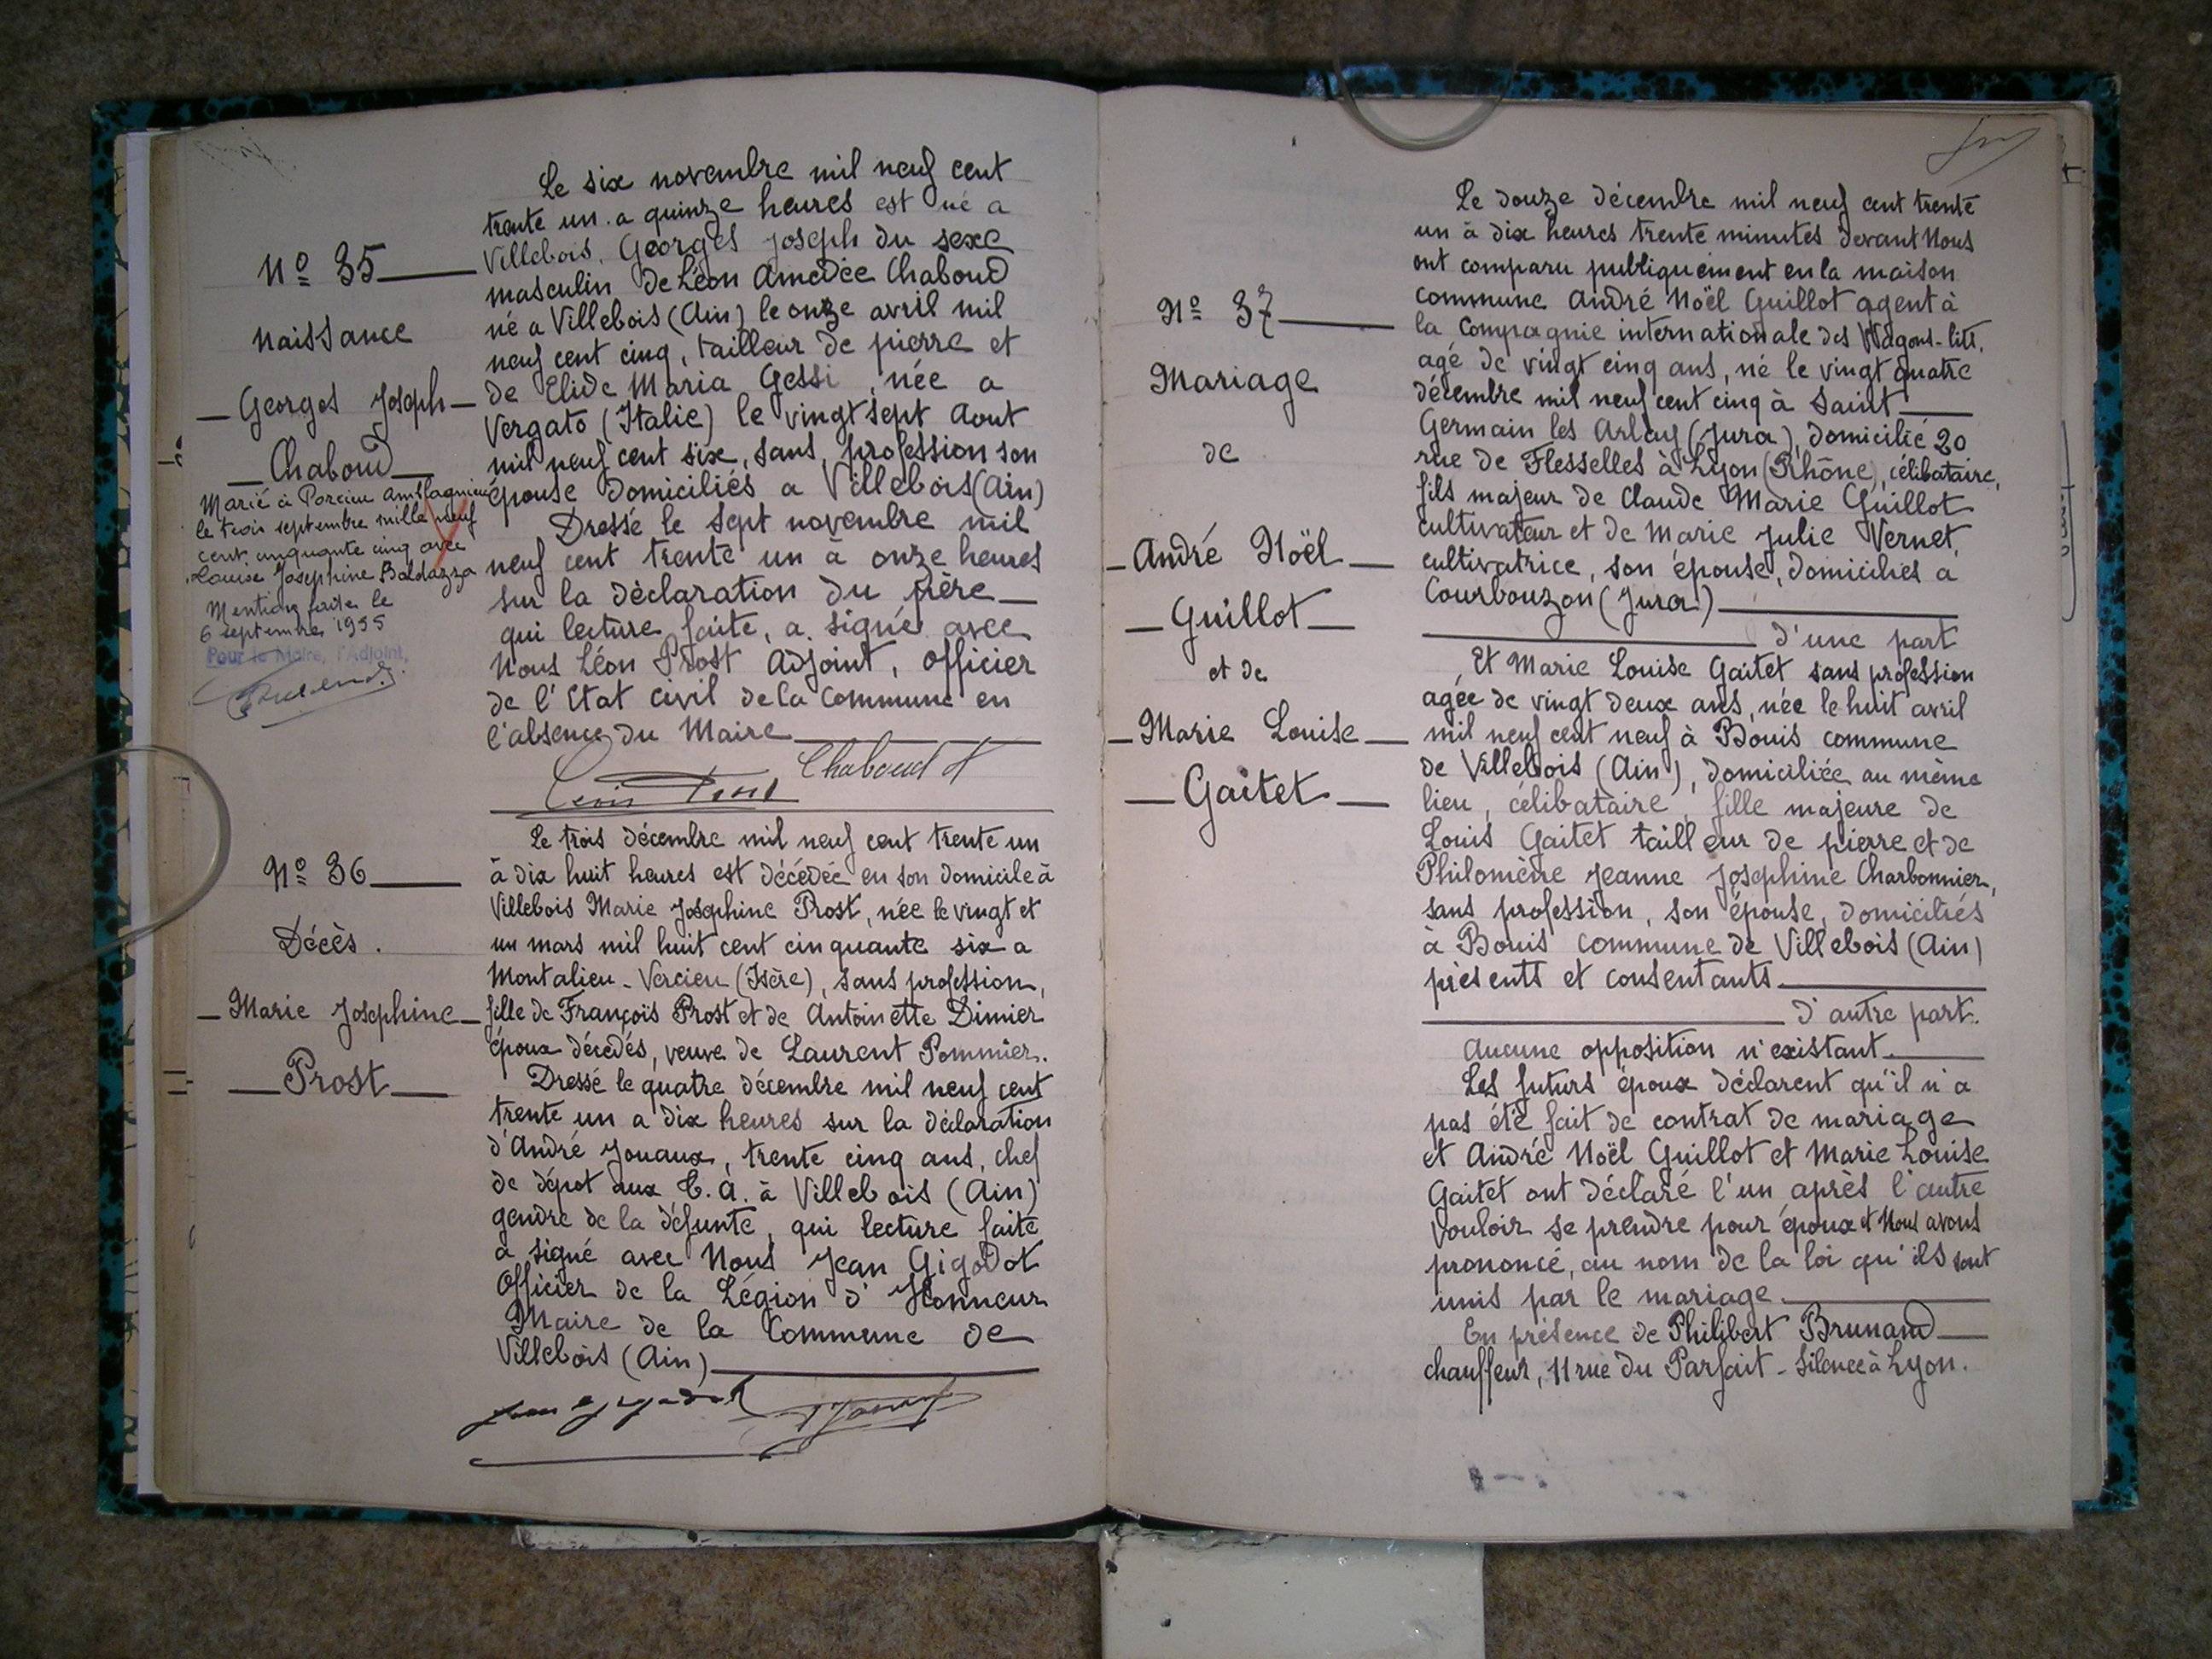 N° 35
Naissance
Georges Joseph
Chaboud
Marié à Porcieu Amblagnieu
le trois septembre mille neuf
cent cinquante cinq avec
Louise Josephine Baldazza
Mention faite le
6 septembre 1955
Pour le Maire, l'Adjoint,
Le six novembre mil neuf cent
trente un a quinze heures est né a
Villebois, Georges Joseph du sexe
masculin de Léon Amédée Chaboud
né a Villebois (Ain) le onze avril mil
neuf cent cinq, tailleur de pierre et
de Elide Maria Gessi, née a
Vergato (Italie) le vingt sept Aout
mil neuf cent six, sans profession son
épouse domiciliés a Villebois (Ain)
Dressé le sept novembre mil
neuf cent trente un à onze heures
sur la déclaration du père
qui lecture faite, a signé avec
Nous Léon Prost Adjoint, Officier
de l'Etat civil de la Commune en
l'absence du Maire
Chaboud
Léon Prost
N° 36
Décès.
Marie Josephine
Prost
Le trois décembre mil neuf cent trente un
à dix huit heures est décédée en son domicile à
Villebois Marie Josephine Prost, née le vingt et
un mars mil huit cent cinquante six a
Montalieu-Vercieu (Isère), sans profession,
fille de François Prost et de Antoinette Dimier
époux décédés, veuve de Laurent Pommier.
Dressé le quatre décembre mil neuf cent
trente un a dix heures sur la déclaration
d'André Jouaux, trente cinq ans, chef
de dépot aux T.A. à Villebois (Ain)
gendre de la défunte, qui lecture faite
a signé avec Nous Jean Gigodot
Officier de la Légion d'Honneur
Maire de la Commune de
Villebois (Ain)
Jean Gigodot
N° 37
Mariage
de
André Noël
Guillot
et de
Marie Louise
Gaitet
Le douze décembre mil neuf cent trente
un à dix heures trente minutes devant Nous
ont comparu publiquement en la maison
commune André Noël Guillot agent à
la Compagnie internationale des Wagons-lits,
agé de vingt cinq ans, né le vingt quatre
décembre mil neuf cent cinq à Saint
Germain les Arlay (Jura), domicilié 20
rue de Flesselles à Lyon (Rhône), célibataire,
fils majeur de Claude Marie Guillot
cultivateur et de Marie Julie Vernet,
cultivatrice, son épouse, domiciliés a
Courbouzon (Jura)
d'une part
Et Marie Louise Gaitet sans profession
agée de vingt deux ans, née le huit avril
mil neuf cent neuf à Bouis commune
de Villebois (Ain), domiciliée au même
lieu, célibataire, fille majeure de
Louis Gaitet tailleur de pierre et de
Philomène Jeanne Josephine Charbonnier,
sans profession, son épouse, domiciliés
à Bouis commune de Villebois (Ain)
présents et consentants
d'autre part.
Aucune opposition n'existant
Les futurs époux déclarent qu'il n'a
pas été fait de contrat de mariage
et André Noël Guillot et Marie Louise
Gaitet ont déclaré l'un après l'autre
vouloir se prendre pour époux et Nous avons
prononcé, au nom de la loi qu'ils sont
unis par le mariage.
En présence de Philibert Brunand
chauffeur, 11 rue du Parfait-Silence à Lyon.